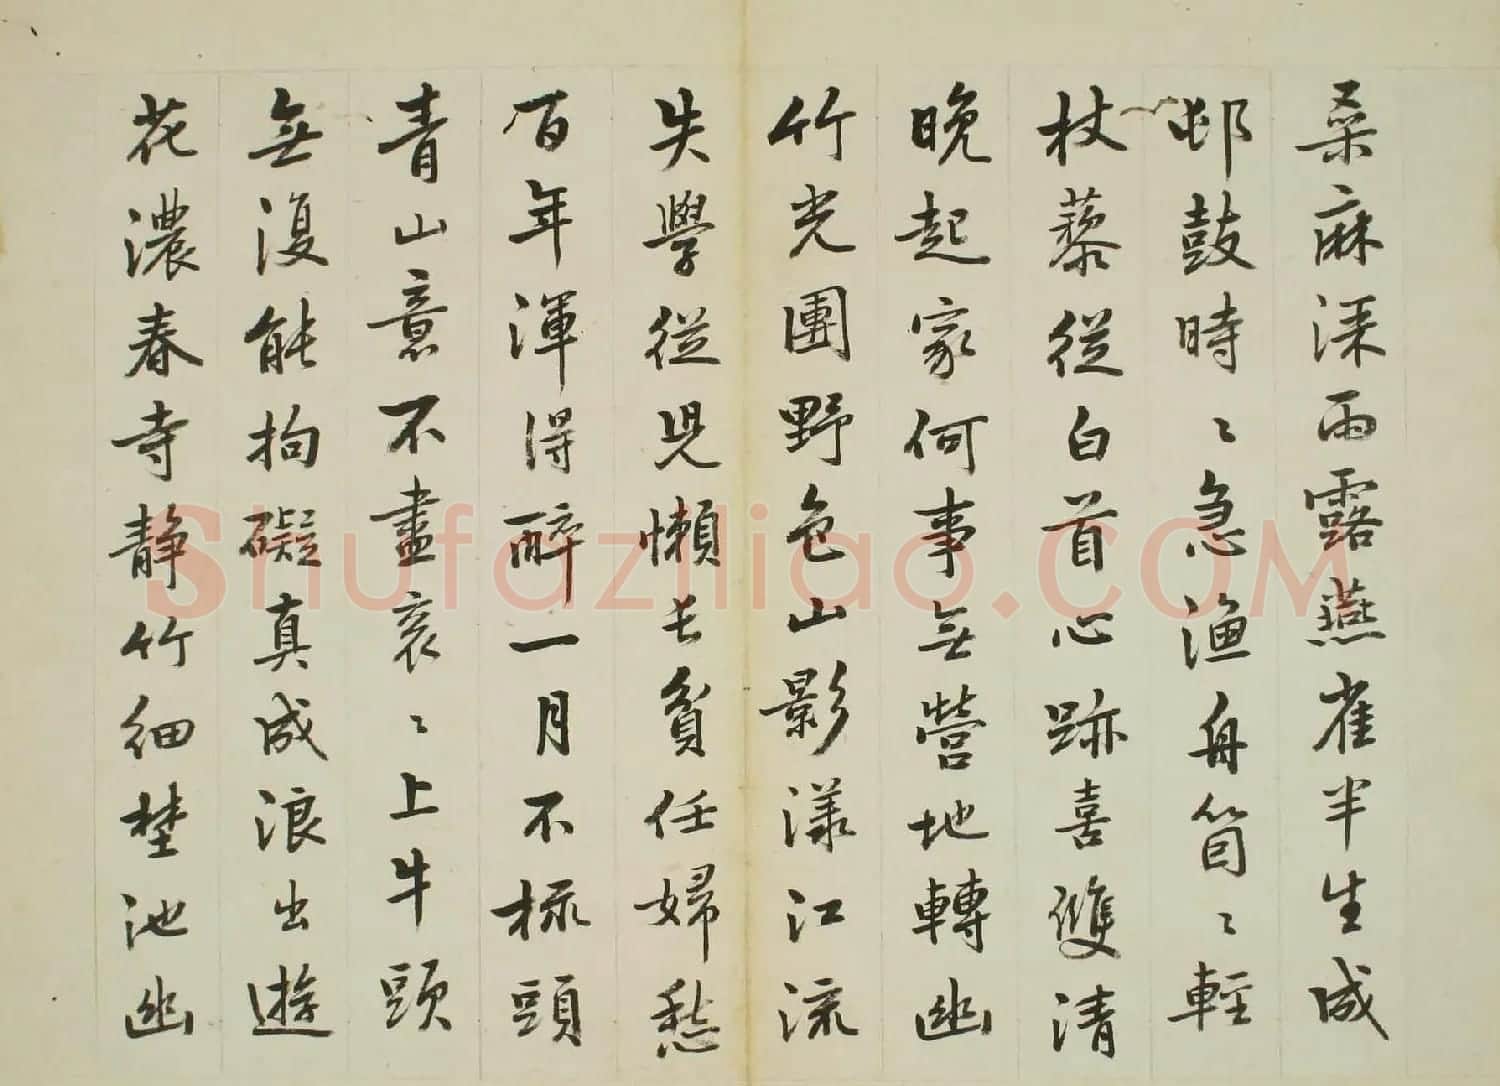 桑麻深雨露燕雀半生成
邨鼓時〻急漁舟箇〻輕
杖藜從白首心跡喜雙清
晚起家何事無營地轉幽
竹光團野色山影漾江流
失學從児懶長貧任婦愁
百年渾得醉一月不梳頭
青山意不盡衮〻上牛頭
無復能拘礙真成浪出遊
花濃春寺静竹細埜池幽
Shufaziliao.COM